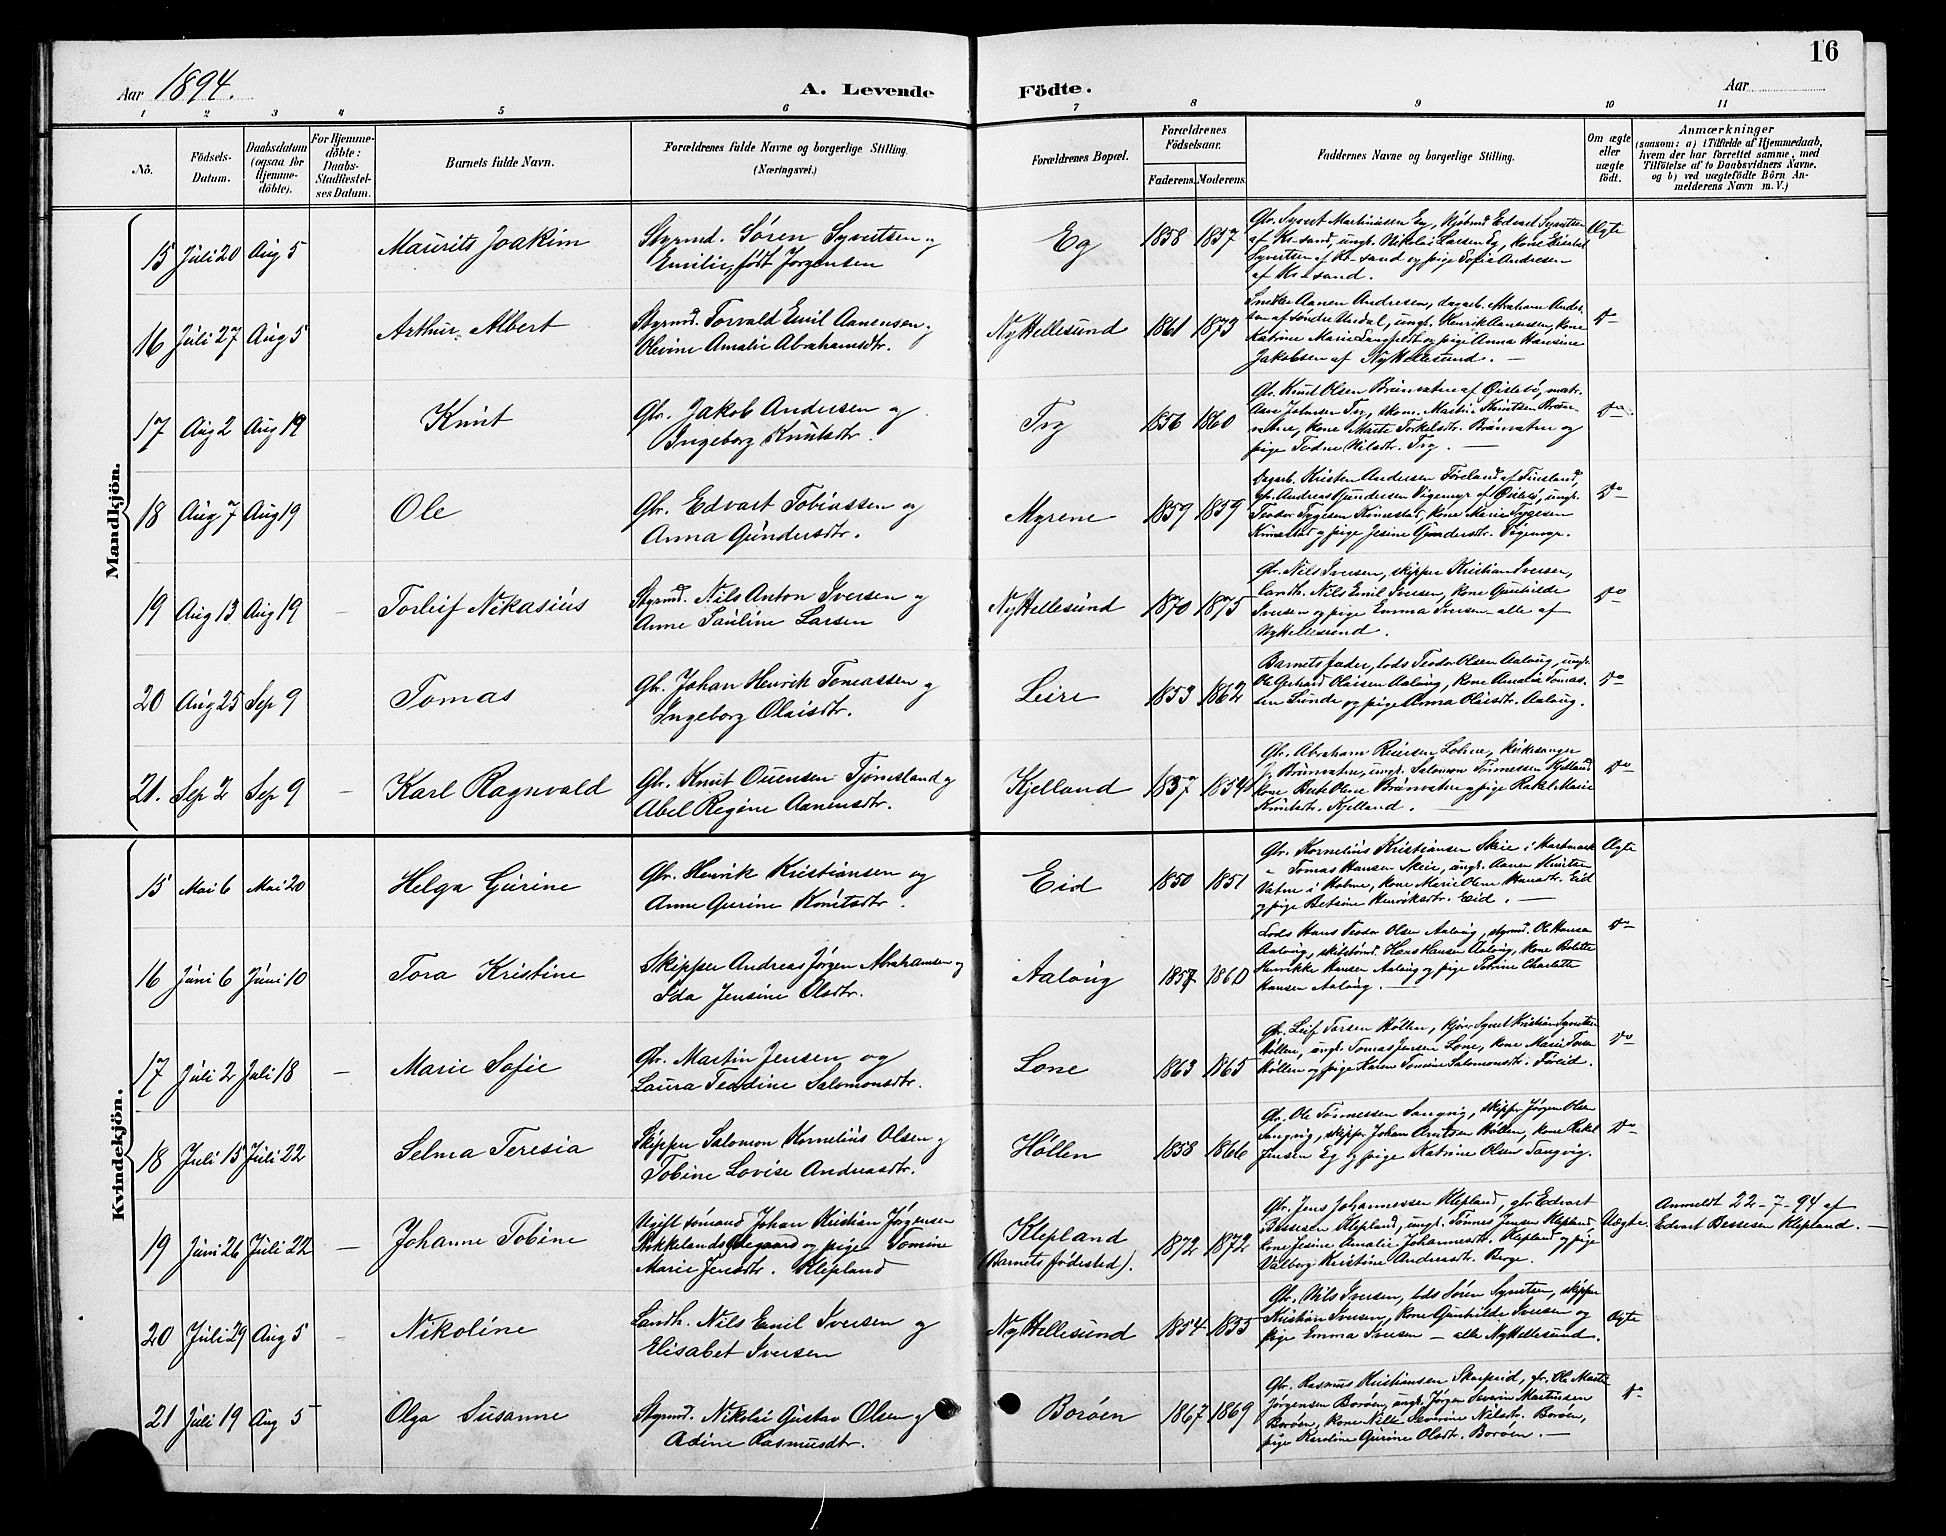 16
Aar 1894.
A. Levende Födte.
Aar
1 2 3 4 5 6 7 8 9 10 11
No.
Födsels-Datum.
Daabsdatum (ogsaa for Hjemme-döbte).
For Hjemme-döbte: Daabs-Stadfæstel-ses Datum.
Barnets fulde Navn.
Forældrenes fulde Navne og borgerlige Stilling. (Næringsvei.)
Forældrenes Bopæl.
Forældrenes Födselsaar.
Faderens. Moderens.
Faddernes Navne og borgerlige Stilling.
Om ægte eller uægte födt.
Anmærkninger
(saasom: a) i Tilfælde af Hjemmedaab, hvem der har forrettet samme, med Tilföielse af to Daabsvidners Navne, og b) ved uægtefödte Börn An-melderens Navn m. V.)
Mandkjön.
15 Juli 20 Aug 5 Maurits Joakim Styrmd. Søren Syvertsen og Emilie, født Jørgensen Eg 1858 1857 Gbr. Syvert Martinussen Eg, Edvart Syvertsen af Kr-sand, ungk. Nikolai Larsen Eg, kone Syvertsen af Kr-sand og pige Sofie Andresen af Kr-sand. Ægte
16 Juli 27 Aug 5 Arthur Albert Styrmd. Torvald Emil Aanensen og Olevine Amalie Abrahamsdtr. Ny Hellesund 1861 1873 Aanen Andresen, dagarb. Abraham Andersen af Søndre Undal, ungk. Henrik Aanensen, kone Katrine Marie Langfeldt og pige Anna Hansine Jakobsen af Ny Hellesund. — Do
17 Aug 2 Aug 19 Knut Gbr. Jakob Andersen og Ingeborg Knutsdtr. Try 1856 1860 Gbr. Knud Olsen Brünvatne af Øislebø, matr. Johnsen Try, skom. Martin Knutsen Brünvatne, kone Marte Torkelsdtr. Brünvatne og pige Tedne Nilsdtr. Try. — Do
18 Aug 7 Aug 19 Ole Gbr. Edvart Tobiassen og Anna Gundersdtr. Myrene 1859 1859 Dagarb. Kristen Andersen Føreland af Finsland, Gbr. Andreas Gundersen Vigemyr af Øislebø, ungk. Teodor Tygesen Kinnestad, kone Marie Tygesen Kinnestad og pige Jesine Gundersdtr. Vigemyr. Do
19 Aug 13 Aug 19 – Torleif Nikasius Styrmd. Nils Anton Iversen og Anne Pauline Larsen Ny Hellesund 1870 1875 Gbr. Nils Iversen, skipper Kristian Iversen, landh. Nils Emil Iversen, kone Gunhilde Iversen og pige Emma Iversen – alle af Ny Hellesund. Do
20 Aug 25 Sep 9 Tomas Gbr. Johan Henrik Tomassen og Ingeborg Olaisdtr. Leire 1853 1862 Barnets fader, lods Teodor Olsen Aaløug, ungk. Ole Gerhard Olaisen Aaløug, kone Amalia Tomassen Lunde og pige Anna Olaisdtr. Aaløug. Do
21. Sep 2 Sep 9 – Karl Ragnvald Gbr. Knut Ouensen Tjomsland og Abel Regine Aanensdtr. Kjelland 1837 1854 Gbr. Abraham Reiersen Lohne, kirkesanger J. Brünvatne, ungk. Salomon Tønnessen Kjelland kone Berte Olene Brünvatne og pige Rakel Marie Knutsdtr. Kjelland. Do
Kvindekjön.
15 Mai 6 Mai 20 Helga Gurine Gbr. Henrik Kristiansen og Anne Gurine Knutsdtr. Eid 1850 1851 Gbr. Kornelius Kristiansen Skeie i Hartmark " Tomas Hansen Skeie, ungk. Aanen Knutsen Vatne i Holme, kone Marie Olene Hansdtr. Eid og pige Betsine Henriksdtr. Eid. — Ægte
16 Juni 6 Juni 10 Tora Kristine Skipper Andreas Jørgen Abrahamsen og Ida Jensine Olsdtr. Aaløug 1857 1860 Lods Hans Teodor Olsen Aaløug, styrmd. Ole Hansen Aaløug, Hans Hansen Aaløug, kone Bolette Henrikke Hansen Aaløug og pige Petrine Charlotte Hansen Aaløug. — Do
17 Juli 2 Juli 18 – Marie Sofie Gbr. Martin Jensen og Laura Teodine Salomonsdtr. Lone 1863 1865 Gbr. Leif Torsen Høllen, Syvert Kristian Syvertsen Høllen, ungk. Tomas Jensen Lone, kone Marie Høllen og pige Karen Tomine Salomonsdtr. Foreid. Do
18 Juli 15 Juli 22 Selma Teresia Skipper Salomon Kornelius Olsen og Tobine Lovise Andreasdtr. Høllen 1858 1866 Gbr. Ole Tønnessen Langvig, skipper Jørgen Olsen Langvig, skipper Johan Arntsen Høllen, kone Rakel Jensen Eg og pige Katrine Olsen Langvig. Do
19 Juni 26 Juli 22 – Johanne Tobine Ugift sømand Johan Kristian Jørgensen Stokkelands Ødegaard og pige Tomine Marie Jensdtr. Klepland Klepland (Barnets fødested). 1872 1872 Gbr. Jens Johannessen Klepland, gbr Edvart Bessesen Klepland, ungk. Tønnes Jensen Klepland, kone Jesine Amalie Johannesdtr. Klepland og pige Valborg Kristine Andersdtr. Berge. Uægte. Anmeldt 22-7-94 af Edvart Bessesen Klepland. —
20 Juli 29 Aug 5 – Nikoline Landh. Nils Emil Iversen og Elisabet Iversen Ny Hellesund 1854 1855 Gbr. Nils Iversen, lods Søren Syvertsen, skipper Kristian Iversen, kone Gunhilde Iversen og pige Emma Iversen – alle Ny Hellesund. Ægte
21 Juli 19 Aug 5 Olga Susanne Styrmd. Nikolai Gustav Olsen og Adine Rasmusdtr. Borøen 1867 1869 Gbr. Rasmus Kristiansen Skarpeid, gbr. Ole Martin Jørgensen Borøen, ungk. Jørgen Severin Martinssen Borøen, kone Nille Severine Nilsdtr. Borøen, pige Karoline Gurine Olsdtr. Borøen. — Do